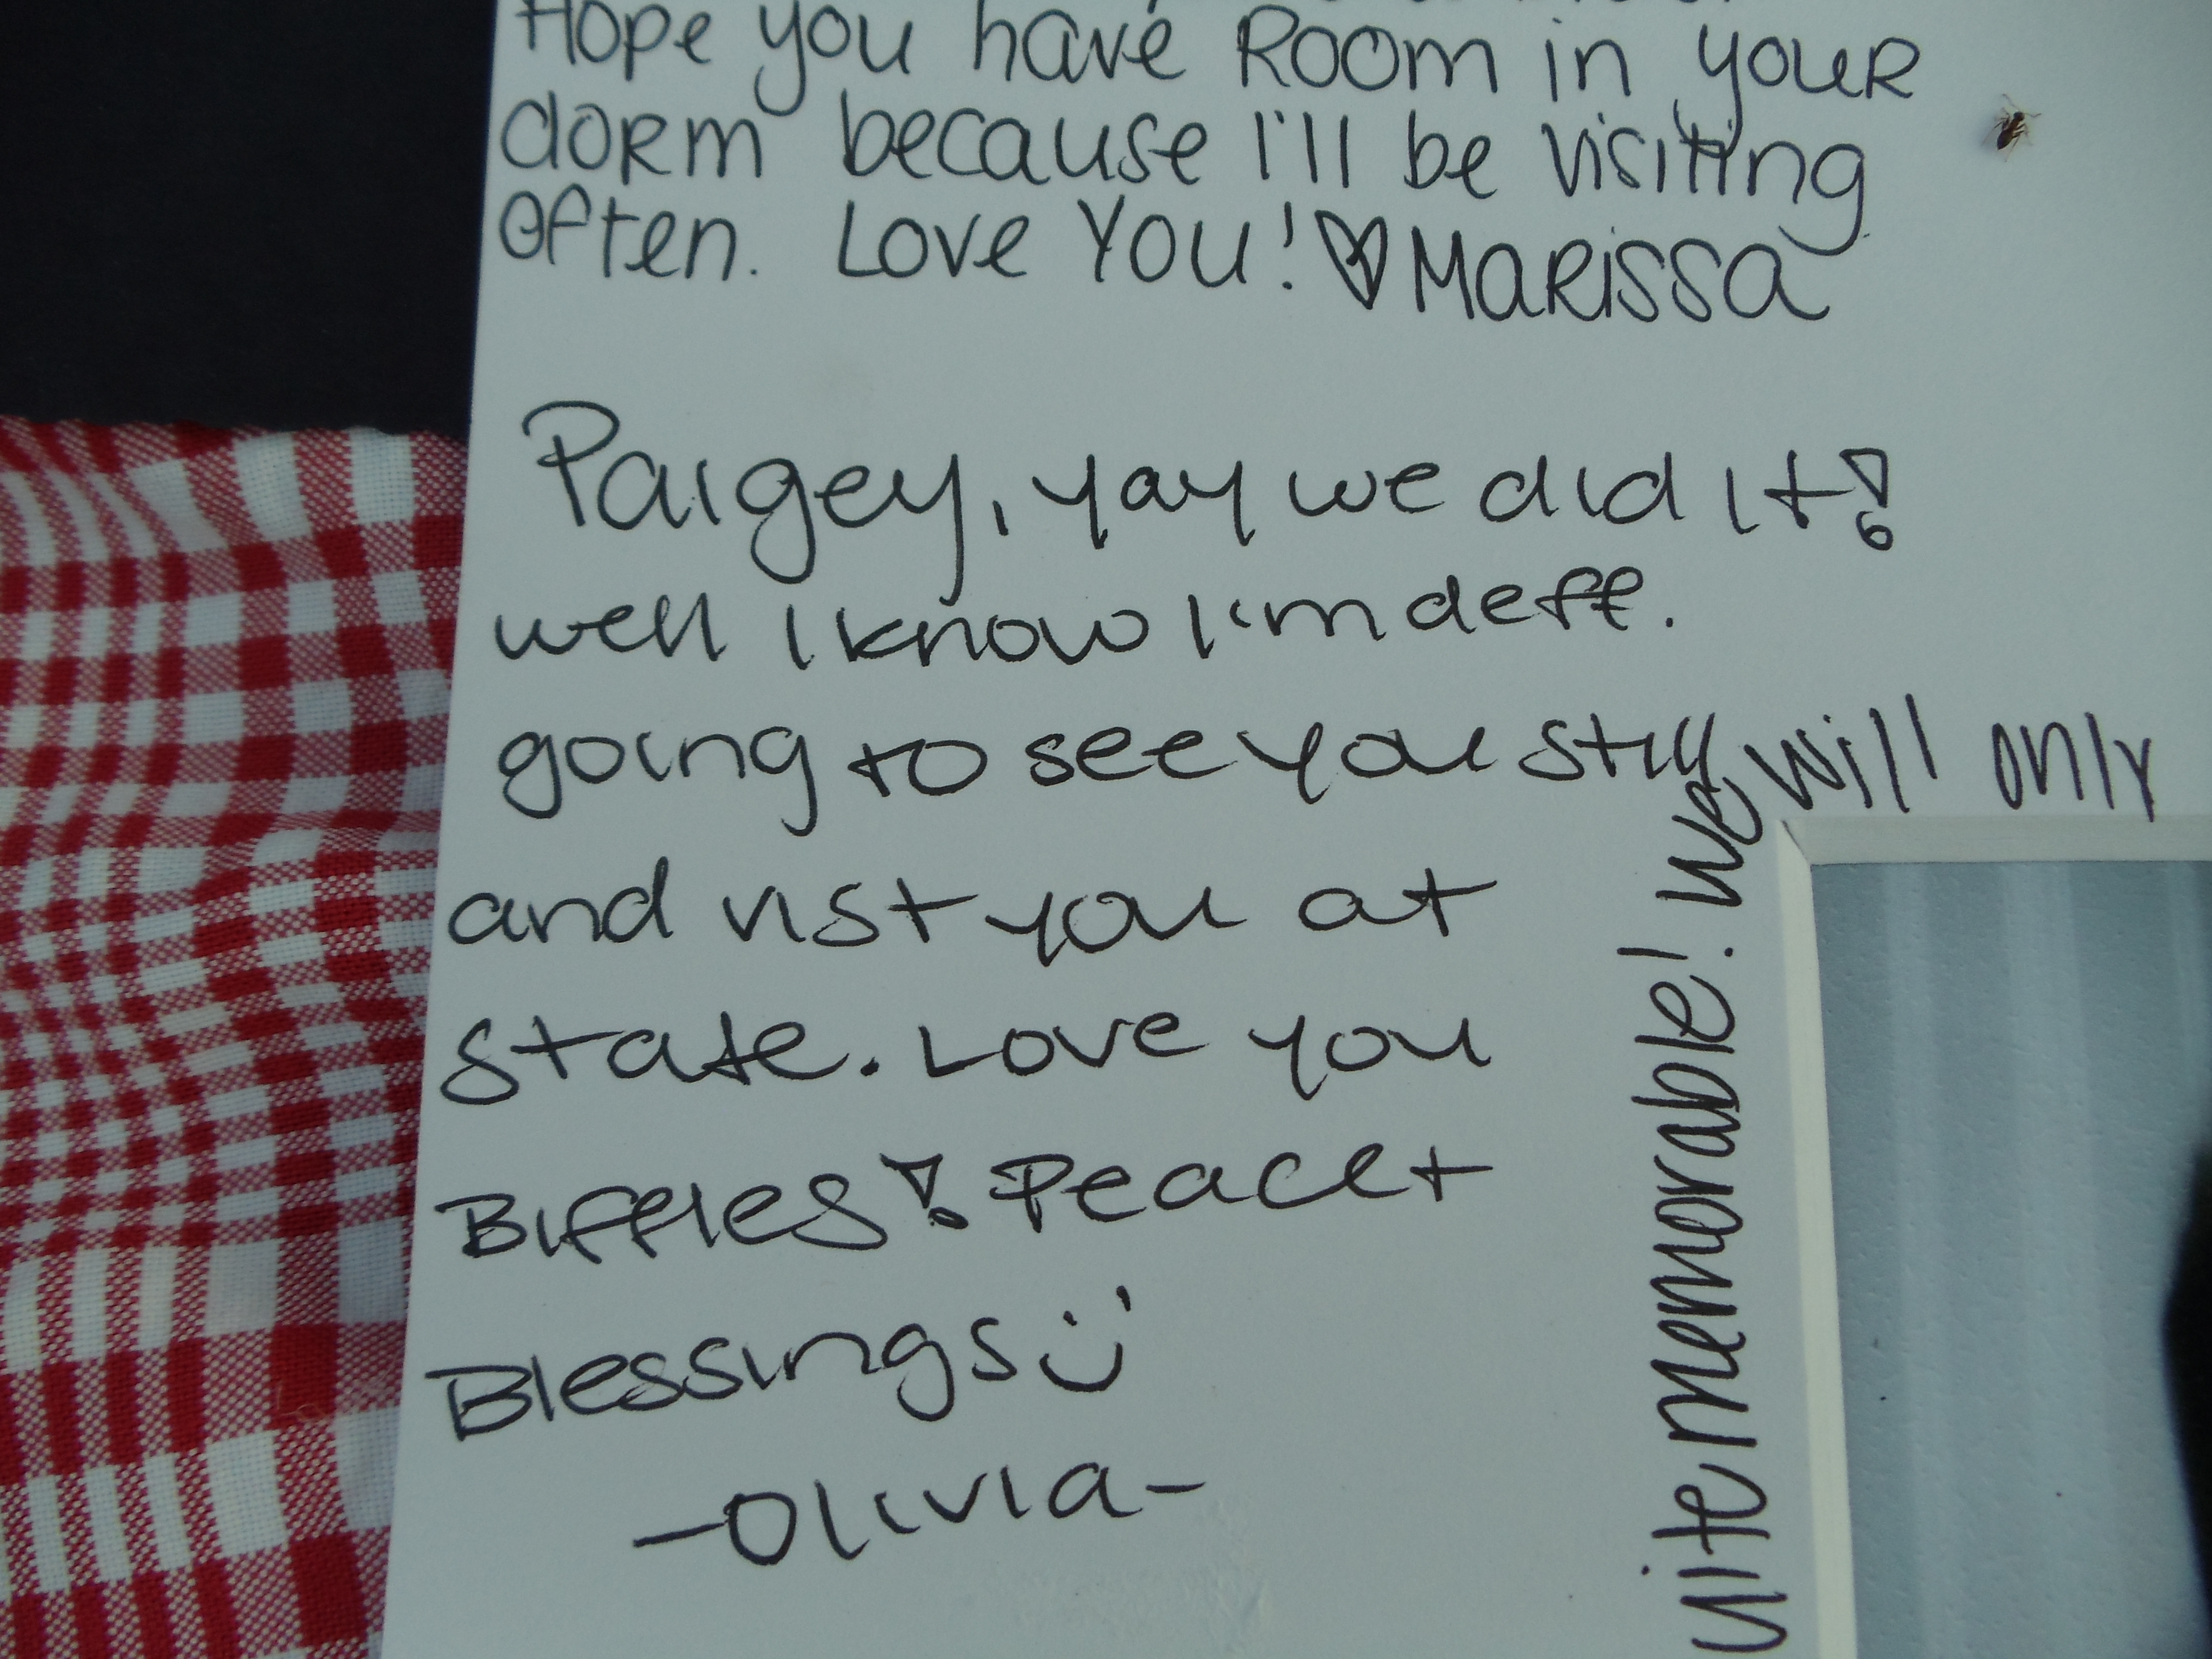 Hope you have Room in youR
doRm because I'll be visiting
Often. Love You! ♡ MaRissa
Paigey, yay we did it!
well I know I'm deff.
going to see you still
and vist you at
state. Love you
Biffles! Peace +
Blessings :)
-Olivia-
memorable! We will only